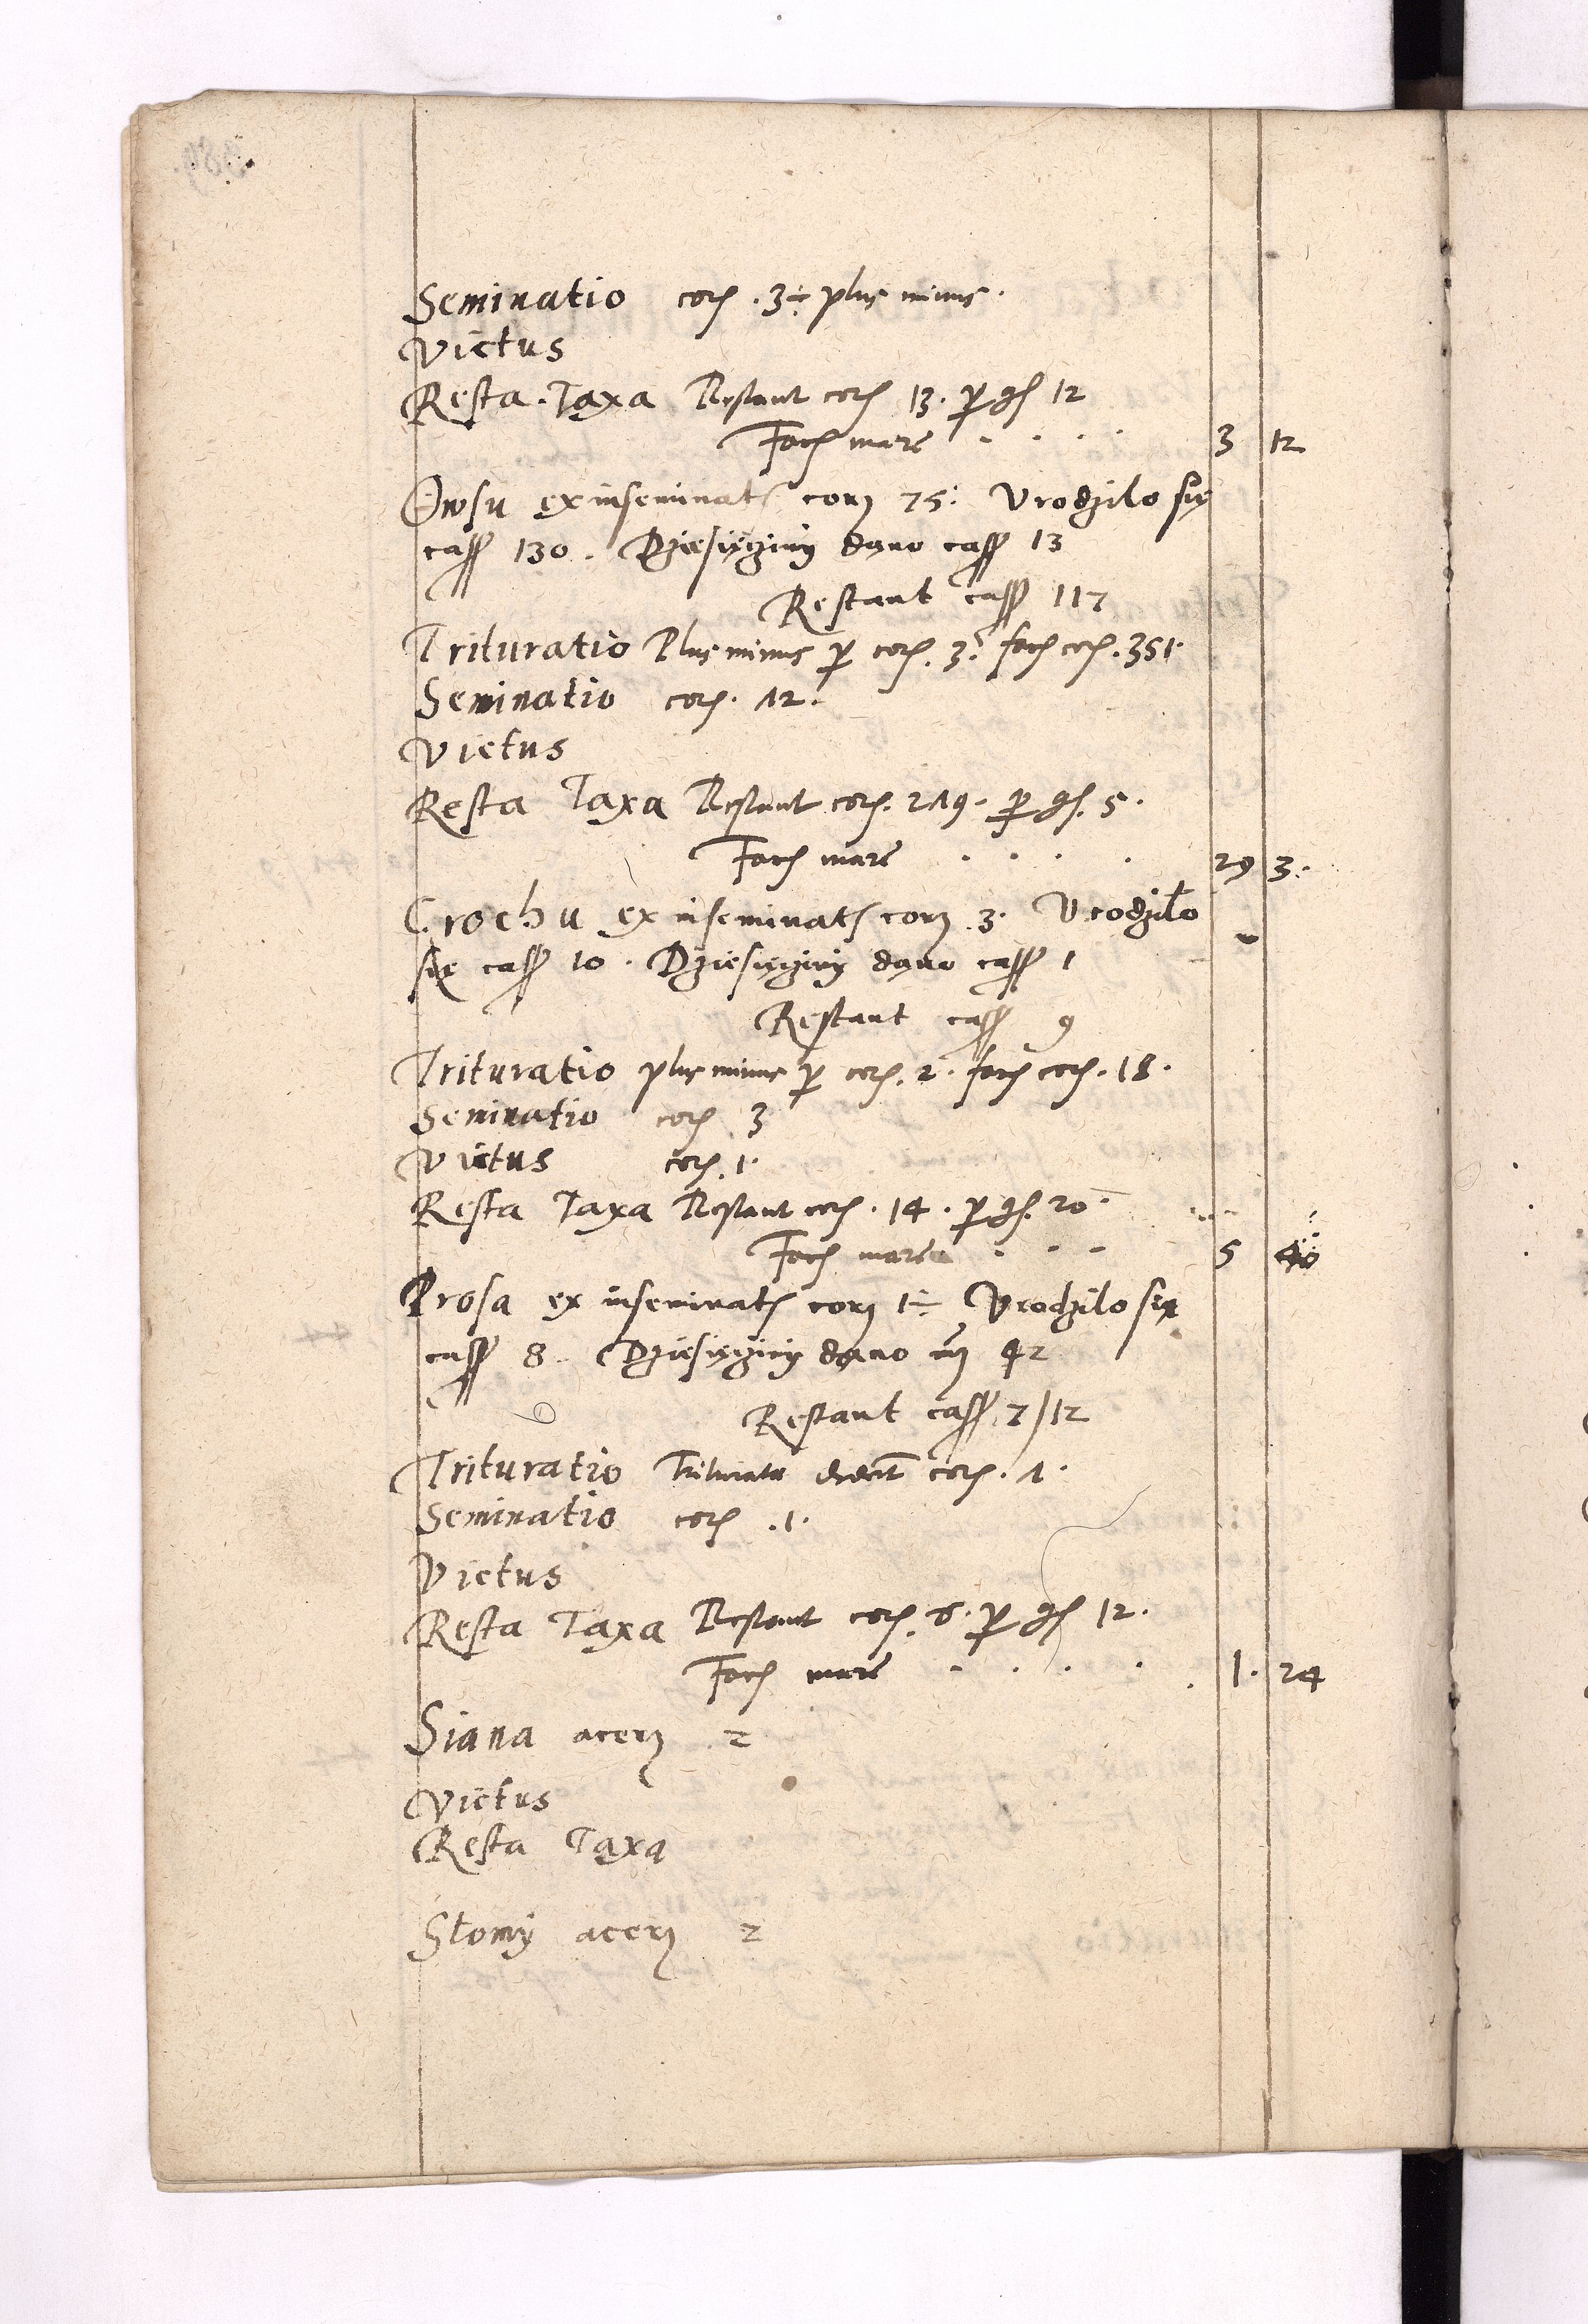 Seminatio cor 3÷ plus minus.
Victus
Resta Taxa Restant cor 13. p gs 12
Facs marc 3 12
Owsu ex inseminats corz 75: Vrodzilo się
cass 130. Dziesięciny dano cass 13
Restant cass 117
Trituratio Plus minus p cor. 3. facs cor. 351.
Seminatio cor. 12.
Victus
Resta Taxa Restant cor. 219. p gs. 5.
Facs marc 29 3.
Grochu ex inseminats corz 3. Vrodziło
się cass 10. Dziesięciny dano cass 1
Restant cass 9
Trituratio plus minus p cor. 2. facs cor. 18.
Seminatio cor 3
Victus cor. 1.
Resta Taxa Restant cor. 14. p gs. 20
Facs marc 5 40
Prosa ex inseminats corz 1÷ Vrodzilo się
cass 8. Dziesięciny dano 42
Restant cass 7/12
Trituratio Triturata cor. 1.
Seminatio cor .1.
Victus
Resta Taxa Restant cor. 6. p gs 12.
Facs marc 1. 24
Siana acerz 2
Victus
Resta Taxa
Słomy acerz 2